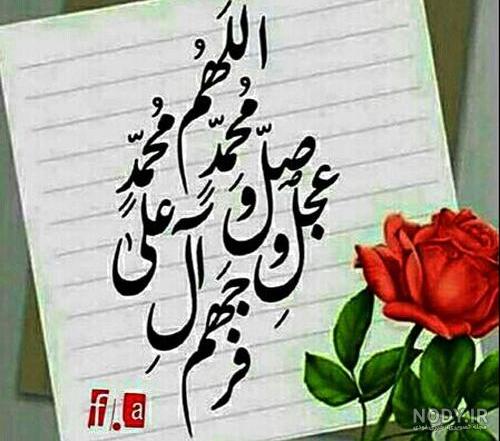 اَللّهُم
صلّ علیٰ
مُحمّدٍ
و آلِ
مُحمّدٍ
و عجّل
فرجهم
f.a
NODY.IR